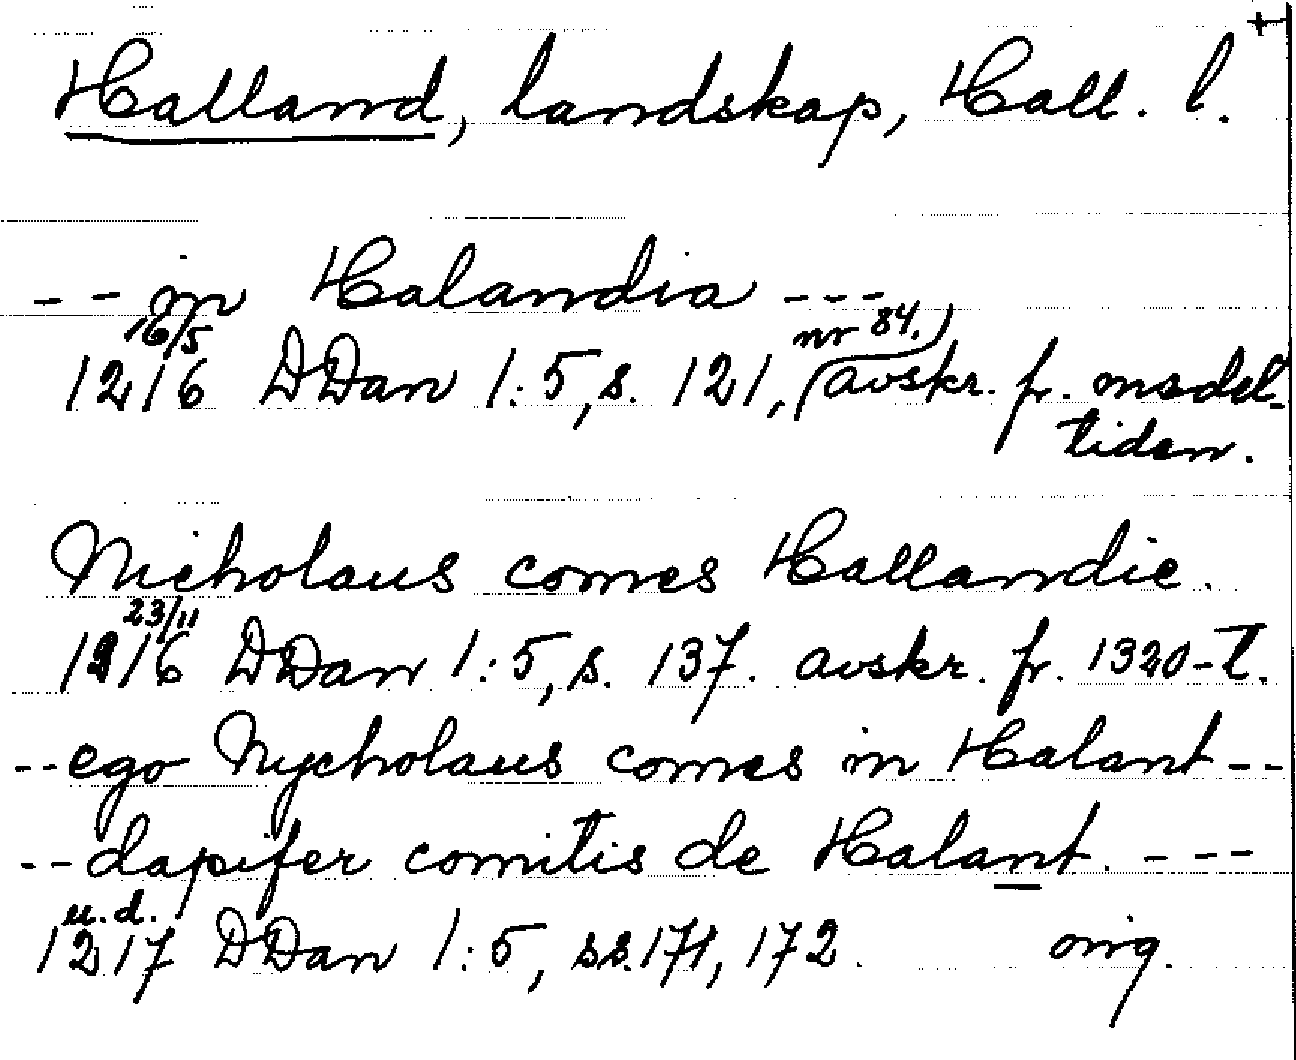 +
Halland, landskap, Hall. l.
-- in Halandia ---
16/5 nr 84.)
1216 DDan 1:5, s. 121, (avskr. fr. medel-
tiden.
Nicholaus comes Hallandie.
23/11
1216 DDan 1:5, s. 137. avskr. fr. 1320-t.
--ego Nycholaus comes in Halant--
--dapifer comitis de Halant. ---
u.d.
1217 DDan 1:5, ss. 171, 172. orig.